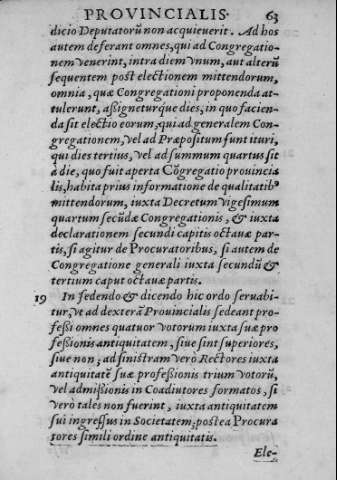 PROVINCIALIS. 63
dicio Deputatorū non acquieuerit. Ad hos
autem deferant omnes, qui ad Congregatio-
nem venerint, intra diem vnum, aut alterū
sequentem post electionem mittendorum,
omnia, quæ Congregationi proponenda at-
tulerunt, aßigneturque dies, in quo facien-
da sit electio eorum, qui ad generalem Con-
gregationem, vel ad Præpositum sunt ituri,
qui dies tertius, vel ad summum quartus sit
à die, quo fuit aperta Cōgregatio prouincia
lis, habita prius informatione de qualitatibꝰ
mittendorum, iuxta Decretum vigesimum
quartum secūdæ Congregationis, & iuxta
declarationem secundi capitis octauæ par-
tis, si agitur de Procuratoribus, si autem de
Congregatione generali iuxta secundū &
tertium caput octauæ partis.
19 In sedendo & dicendo hic ordo seruabi-
tur, vt ad dexterā Prouincialis sedeant pro-
feßi omnes quatuor votorum iuxta suæ pro
feßionis antiquitatem, siue sint superiores,
siue non; ad sinistram verò Rectores iuxta
antiquitatē suæ profeßionis trium votorū,
vel admißionis in Coadiutores formatos, si
verò tales non fuerint, iuxta antiquitatem
sui ingressus in Societatem; postea Procura
tores simili ordine antiquitatis.
Ele-